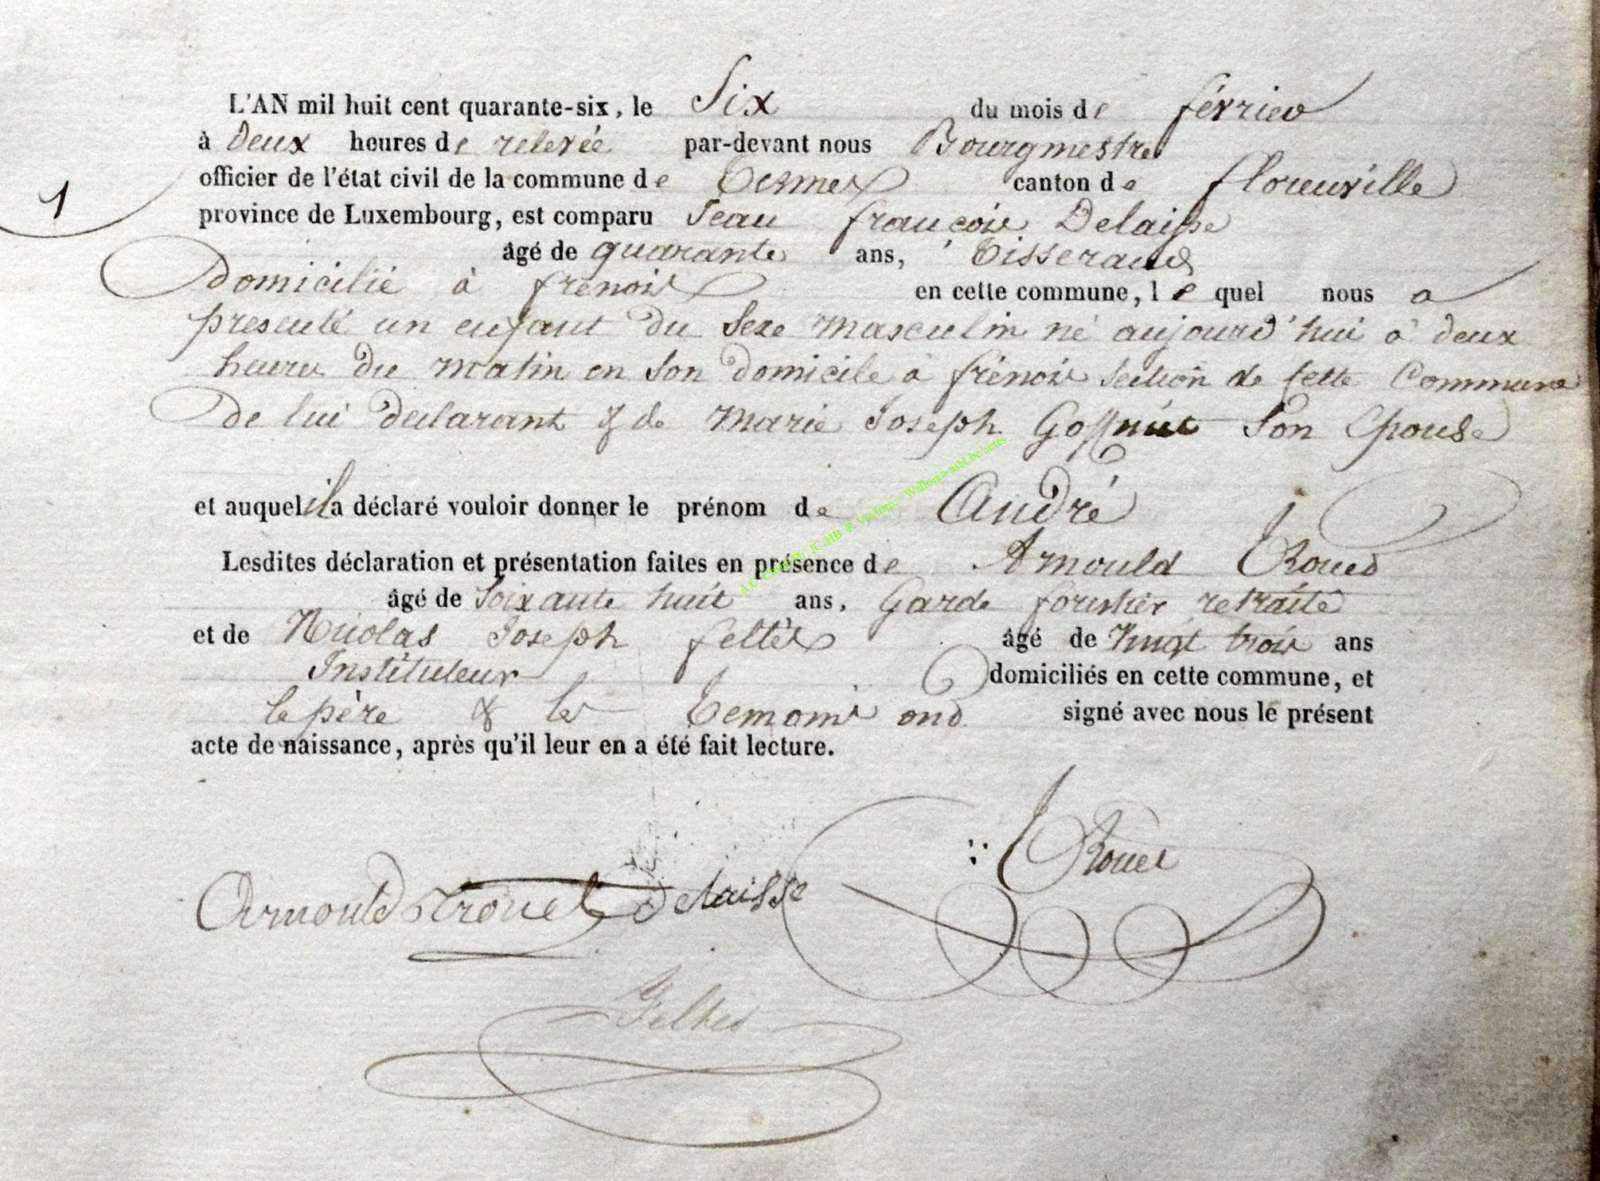 1
L'AN mil huit cent quarante-six, le Six du mois de février
à Deux heures de relevée par-devant nous Bourgmestre
officier de l'état civil de la commune de Termes canton de florenville
province de Luxembourg, est comparu Jean françois Delaisse
âgé de quarante ans, Tisserand
Domicilié à frénois en cette commune, lequel nous a
présenté un enfant du Sexe masculin né aujourd'hui à deux
heures du matin en Son Domicile à frénois section de cette Commune
De lui déclarant & de Marie Joseph Son Epouse
et auquel il a déclaré vouloir donner le prénom de André
Lesdites déclaration et présentation faites en présence de Arnould
âgé de Soixante huit ans, Garde forestier retraité
et de Nicolas Joseph feltès âgé de vingt trois ans
Instituteur domiciliés en cette commune, et
le père & les Temoins ond signé avec nous le présent
acte de naissance, après qu'il leur en a été fait lecture.
Arnould Trouet Delaisse
Feltes